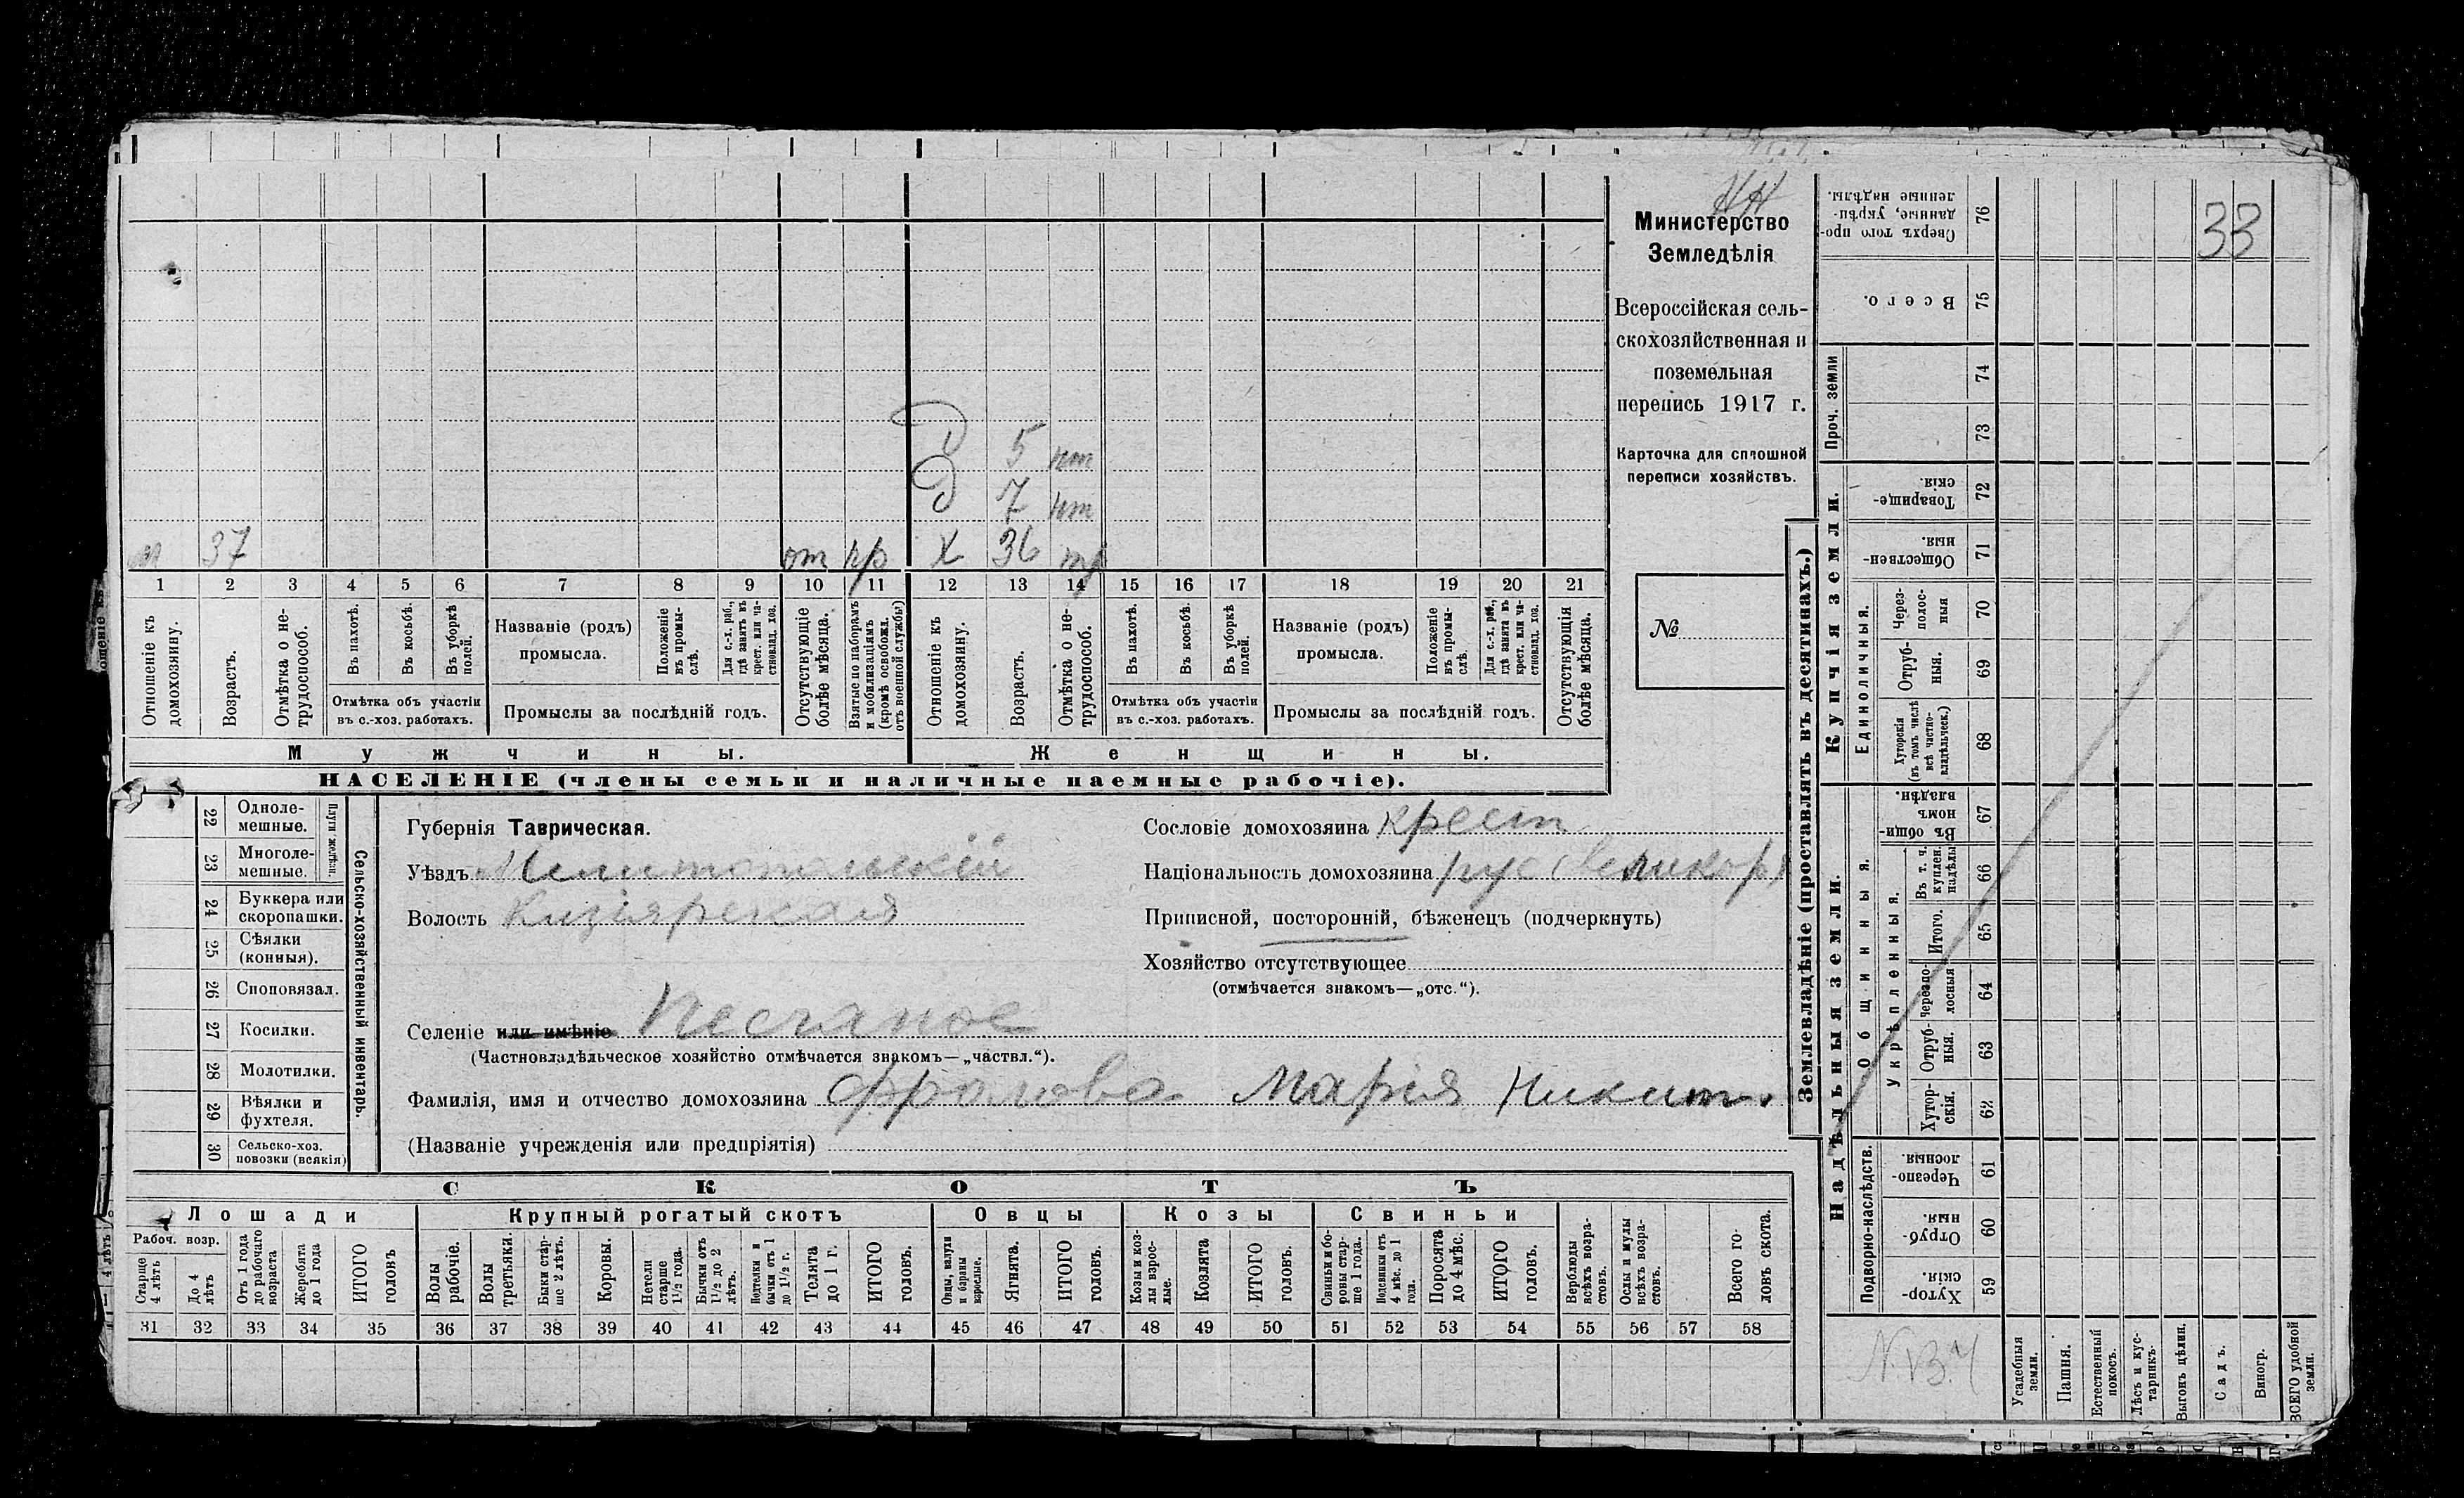 НН
Министерство
Земледѣлія
Всероссійская сель-
скохозяйственная и
поземельная
перепись 1917 г.
Карточка для сплошной
переписи хозяйствъ.
№
33
Д 5 нт
Д 7 нт
м 37 от пр Х 36 тр
1 2 3 4 5 6 7 8 9 10 11 12 13 14 15 16 17 18 19 20 21
Отношеніе къ домохозяину.
Возрастъ.
Отмѣтка о не-трудоспособ.
Въ пахотѣ.
Въ косьбѣ.
Въ уборкѣ полей.
Отмѣтка объ участіи
въ с.-хоз. работахъ.
Названіе (родъ)
промысла.
Положеніе въ промы-слѣ.
Для с.-х. раб., гдѣ занятъ въ крест. или ча-стновлад. хоз.
Промыслы за послѣдній годъ.
Отсутствующіе болѣе мѣсяца.
Взятые по наборамъ и мобилизаціямъ (кромѣ освобожд. отъ военной службы)
Отношеніе къ домохозяину.
Возрастъ.
Отмѣтка о не-трудоспособ.
Въ пахотѣ.
Въ косьбѣ.
Въ уборкѣ полей.
Отмѣтка объ участіи
въ с.-хоз. работахъ.
Названіе (родъ)
промысла.
Положеніе въ промы-слѣ.
Для с.-х. раб., гдѣ занята въ крест. или ча-стновлад. хоз.
Промыслы за послѣдній годъ.
Отсутствующія болѣе мѣсяца.
Мужчины.
Женщины.
НАСЕЛЕНІЕ (члены семьи и наличные наемные рабочіе).
22 Одноле-мешные.
23 Многоле-мешные.
Плуги желѣзн.
24 Буккера или скоропашки.
25 Сѣялки (конныя).
26 Сноповязал.
27 Косилки.
28 Молотилки.
29 Вѣялки и фухтеля.
30 Сельско-хоз. повозки (всякія)
Сельско-хозяйственный инвентарь.
Губернія Таврическая.
Уѣздъ Мелитопольскій
Волость Кизіярская
Селеніе или имѣніе Песчаное
(Частновладѣльческое хозяйство отмѣчается знакомъ—„частвл.“).
Фамилія, имя и отчество домохозяина Фролова Марія Никит.
(Названіе учрежденія или предпріятія)
Сословіе домохозяина крест
Національность домохозяина рус (великор)
Приписной, посторонній, бѣженецъ (подчеркнуть)
Хозяйство отсутствующее
(отмѣчается знакомъ—„отс.“).
СКОТЪ
Лошади
Крупный рогатый скотъ
Овцы
Козы
Свиньи
Рабоч. возр.
Старше 4 лѣтъ
До 4 лѣтъ
Отъ 1 года до рабочаго возраста
Жеребята до 1 года
ИТОГО головъ
Волы рабочіе.
Волы третьяки.
Быки стар-ше 2 лѣтъ.
Коровы.
Нетели старше 1½ года.
Бычки отъ 1½ до 2 лѣтъ.
Подтелки и бычки отъ 1 до 1½ г.
Телята до 1 г.
ИТОГО головъ.
Овцы, валухи и бараны взрослые.
Ягнята.
ИТОГО головъ.
Козы и коз-лы взрос-лые.
Козлята
ИТОГО головъ.
Свиньи и бо-ровы стар-ше 1 года.
Подсвинки отъ 4 мѣс. до 1 года.
Поросята до 4 мѣс.
ИТОГО головъ.
Верблюды всѣхъ возра-стовъ.
Ослы и мулы всѣхъ возра-стовъ.
Всего го-ловъ скота.
31 32 33 34 35 36 37 38 39 40 41 42 43 44 45 46 47 48 49 50 51 52 53 54 55 56 57 58
Землевладѣніе (проставлять въ десятинахъ.)
Надѣльныя земли.
Купчія земли.
Проч. земли
Подворно-наслѣдств.
Общинныя.
Укрѣпленныя.
Единоличныя.
Сверхъ того про-данные, укрѣп-ленные надѣлы. 76
Всего. 75
74
73
Товарище-скія. 72
Обществен-ныя. 71
Через-полос-ныя 70
Отруб-ныя. 69
Хуторскія (въ томъ числѣ всѣ частно-владѣльческ.) 68
Въ общи-номъ владѣн. 67
Въ т. ч. куплен. надѣлы 66
Итого. 65
Черезпо-лосныя 64
Отруб-ныя. 63
Хутор-скія. 62
Черезпо-лосныя. 61
Отруб-ныя. 60
Хутор-скія. 59
Усадебныя земли.
Пашня.
Естественный покосъ.
Лѣсъ и кус-тарникъ.
Выгонъ цѣлин.
Садъ.
Виногр.
ВСЕГО удобной земли.